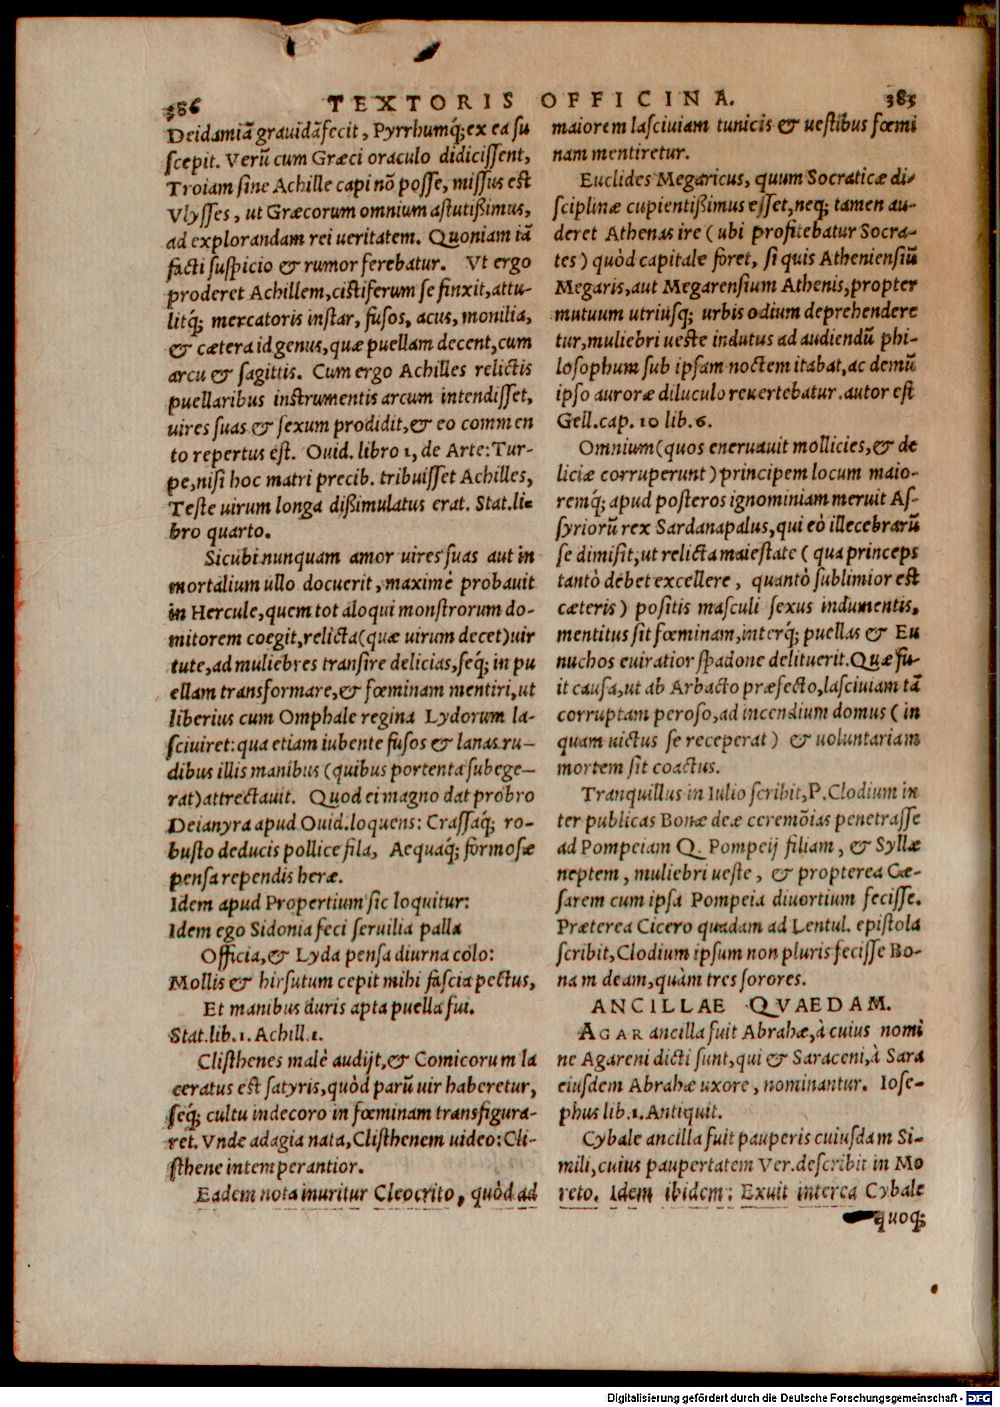 386 TEXTORIS OFFICINA. 385
Deidamiā grauidā fecit, Pyrrhumq́; ex ea su
scepit. Verū cum Græci oraculo didicissent,
Troiam sine Achille capi nō posse, missus est
Vlysses, ut Græcorum omnium astutißimus,
ad explorandam rei ueritatem. Quoniam iā
facti suspicio & rumor ferebatur. Vt ergo
proderet Achillem, cistiferum se finxit, attu-
litq́; mercatoris instar, fusos, acus, monilia,
& cætera id genus, quæ puellam decent, cum
arcu & sagittis. Cum ergo Achilles relictis
puellaribus instrumentis arcum intendisset,
uires suas & sexum prodidit, & eo commen
to repertus est. Ouid. libro 1, de Arte: Tur-
pe, nisi hoc matri precib. tribuisset Achilles,
Teste uirum longa dißimulatus erat. Stat. li-
bro quarto.
Sicubi nunquam amor uires suas aut in
mortalium ullo docuerit, maximè probauit
in Hercule, quem tot alioqui monstrorum do-
mitorem coegit, relicta (quæ uirum decet) uir
tute, ad muliebres transire delicias, seq́; in pu
ellam transformare, & fœminam mentiri, ut
liberius cum Omphale regina Lydorum la-
sciuiret: qua etiam iubente fusos & lanas ru-
dibus illis manibus (quibus portenta subege-
rat) attrectauit. Quod ei magno dat probro
Deianyra apud Ouid. loquens: Crassaq́; ro-
busto deducis pollice fila, Aequaq́; formosæ
pensa rependis heræ.
Idem apud Propertium sic loquitur:
Idem ego Sidonia feci seruilia palla
Officia, & Lyda pensa diurna colo:
Mollis & hirsutum cepit mihi fascia pectus,
Et manibus duris apta puella fui.
Stat. lib. 1. Achill. 1.
Clisthenes malè audijt, & Comicorum la
ceratus est satyris, quòd parū uir haberetur,
seq́; cultu indecoro in fœminam transfigura-
ret. Vnde adagia nata, Clisthenem uideo: Cli-
sthene intemperantior.
Eadem nota inuritur Cleocrito, quòd ad
maiorem lasciuiam tunicis & uestibus fœmi
nam mentiretur.
Euclides Megaricus, quum Socraticæ di-
sciplinæ cupientißimus esset, neq; tamen au-
deret Athenas ire (ubi profitebatur Socra-
tes) quòd capitale foret, si quis Atheniensiū
Megaris, aut Megarensium Athenis, propter
mutuum utriusq; urbis odium deprehendere
tur, muliebri ueste indutus ad audiendū phi-
losophum sub ipsam noctem itabat, ac demū
ipso auroræ diluculo reuertebatur. autor est
Gell. cap. 10 lib. 6.
Omnium (quos eneruauit mollicies, & de
liciæ corruperunt) principem locum maio-
remq́; apud posteros ignominiam meruit As-
syriorū rex Sardanapalus, qui eò illecebrarū
se dimisit, ut relicta maiestate (qua princeps
tantò debet excellere, quantò sublimior est
cæteris) positis masculi sexus indumentis,
mentitus sit fœminam, interq́; puellas & Eu
nuchos euiratior spadone delituerit. Quæ fu-
it causa, ut ab Arbacto præfecto, lasciuiam tā
corruptam peroso, ad incendium domus (in
quam uictus se receperat) & uoluntariam
mortem sit coactus.
Tranquillus in Iulio scribit, P. Clodium in
ter publicas Bonæ deæ ceremōias penetrasse
ad Pompeiam Q. Pompeij filiam, & Syllæ
neptem, muliebri ueste, & propterea Cæ-
sarem cum ipsa Pompeia diuortium fecisse.
Præterea Cicero quadam ad Lentul. epistola
scribit, Clodium ipsum non pluris fecisse Bo-
nam deam, quàm tres sorores.
ANCILLAE QVAEDAM.
AGAR ancilla fuit Abrahæ, à cuius nomi
ne Agareni dicti sunt, qui & Saraceni, à Sara
eiusdem Abrahæ uxore, nominantur. Iose-
phus lib. 1. Antiquit.
Cybale ancilla fuit pauperis cuiusdam Si-
mili, cuius paupertatem Ver. describit in Mo
reto. Idem ibidem: Exuit interea Cybale
quoq;
Digitalisierung gefördert durch die Deutsche Forschungsgemeinschaft - DFG